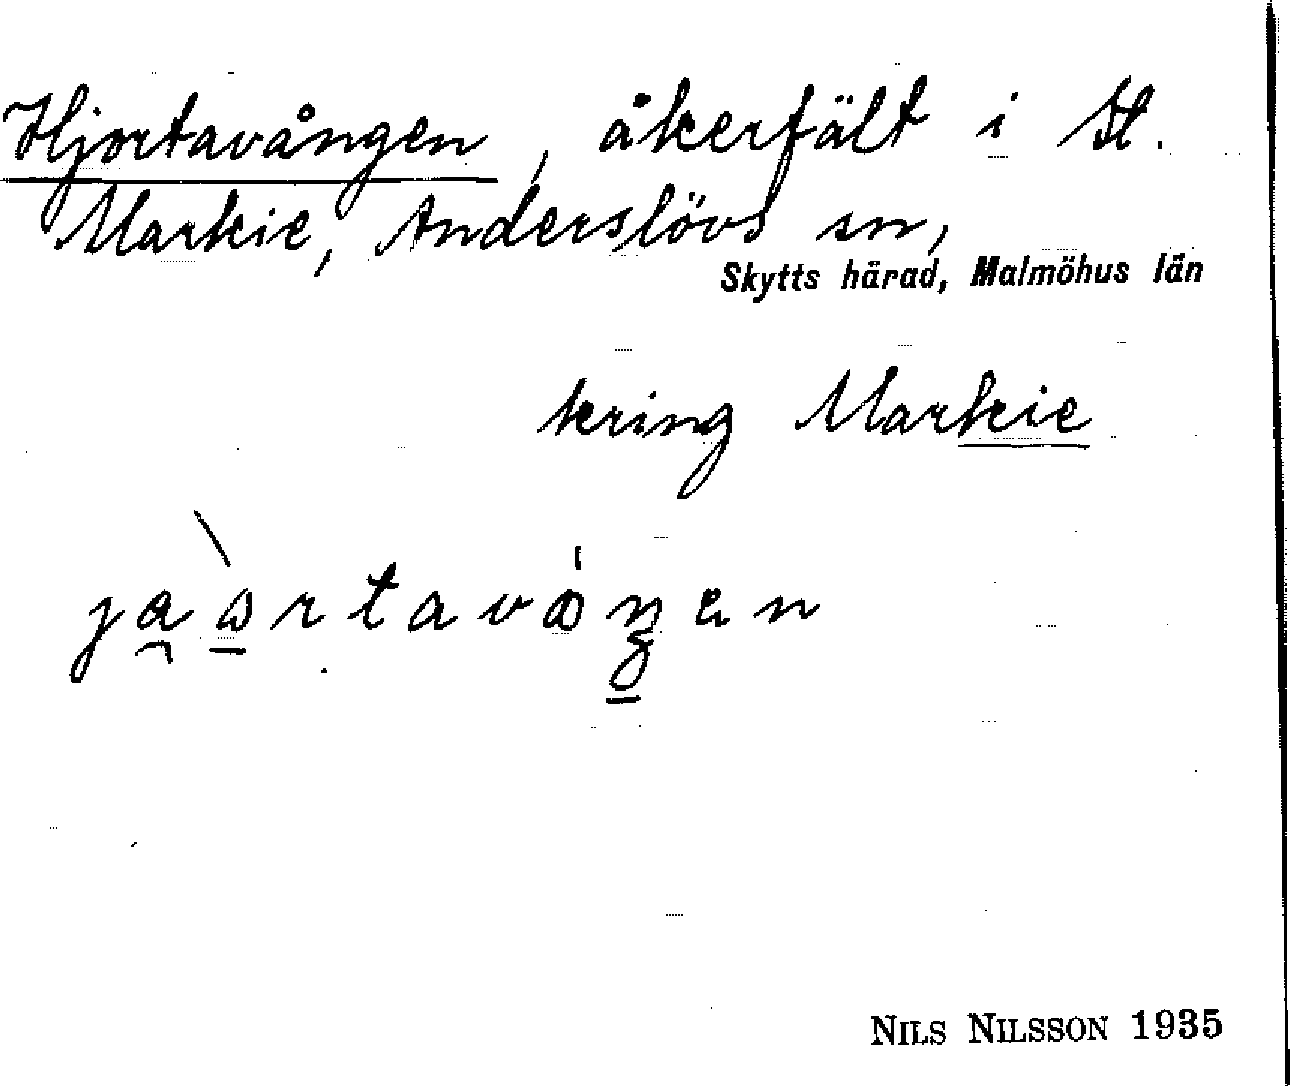 Hjortavången, åkerfält i St.
Markie, Anderslövs sn,
Skytts härad, Malmöhus län
kring Markie
NILS NILSSON 1935